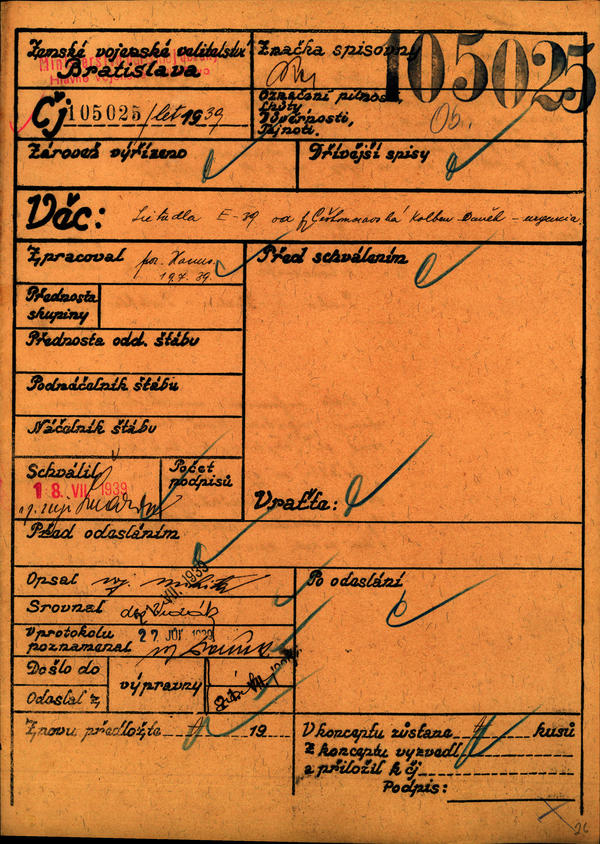 Zemské vojenské velitelství
Bratislava
Značka spisovny
105025
Čj 105025/let 1939
Označení pilnosti,
lhůty
Důvěrnosti,
Tajnosti.
05.
Zároveň vyřízeno
Dřívější spisy
Věc: Lietadla E-39 od fy Českomoravská Kolben Daněk - urgencia.
Zpracoval por. Hanus
19.7.39.
Před schválením
Přednosta
skupiny
Přednosta odd. štábu
Podnáčelník štábu
Náčelník štábu
Schválil
18. VII. 1939
Počet
podpisů
Vraťte:
Před odesláním
Opsal
Po odeslání
Srovnal
V protokolu
poznamenal
27 JÚL 1939
Došlo do
Odeslal z
výpravny
Znovu předložte 19
V konceptu zůstane kusů
Z konceptu vyzvedl
a přiložil k čj
Podpis:
26